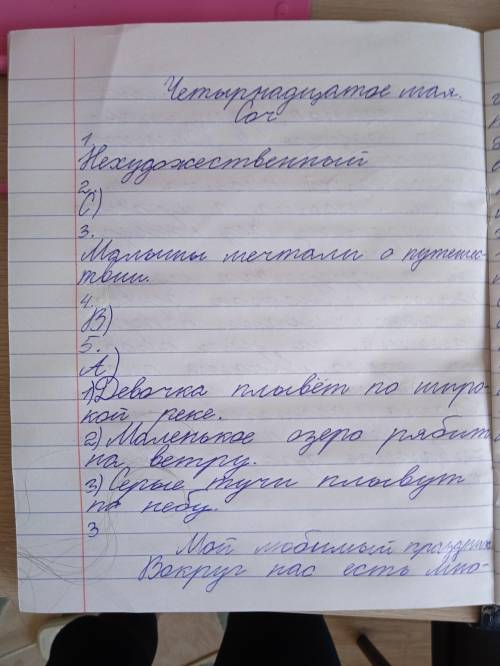 Четырнадцатое мая.
Соч
1.
Нехудожественный
2.
С)
3.
Мальчики мечтали о путешес-
твии.
4.
В)
5.
А)
1) Девочка плывёт по широ-
кой реке.
2) Маленькое озеро рябит
на ветру.
3) Серые тучи плывут
по небу.
3
Мой любимый праздник
Вокруг нас есть мно-